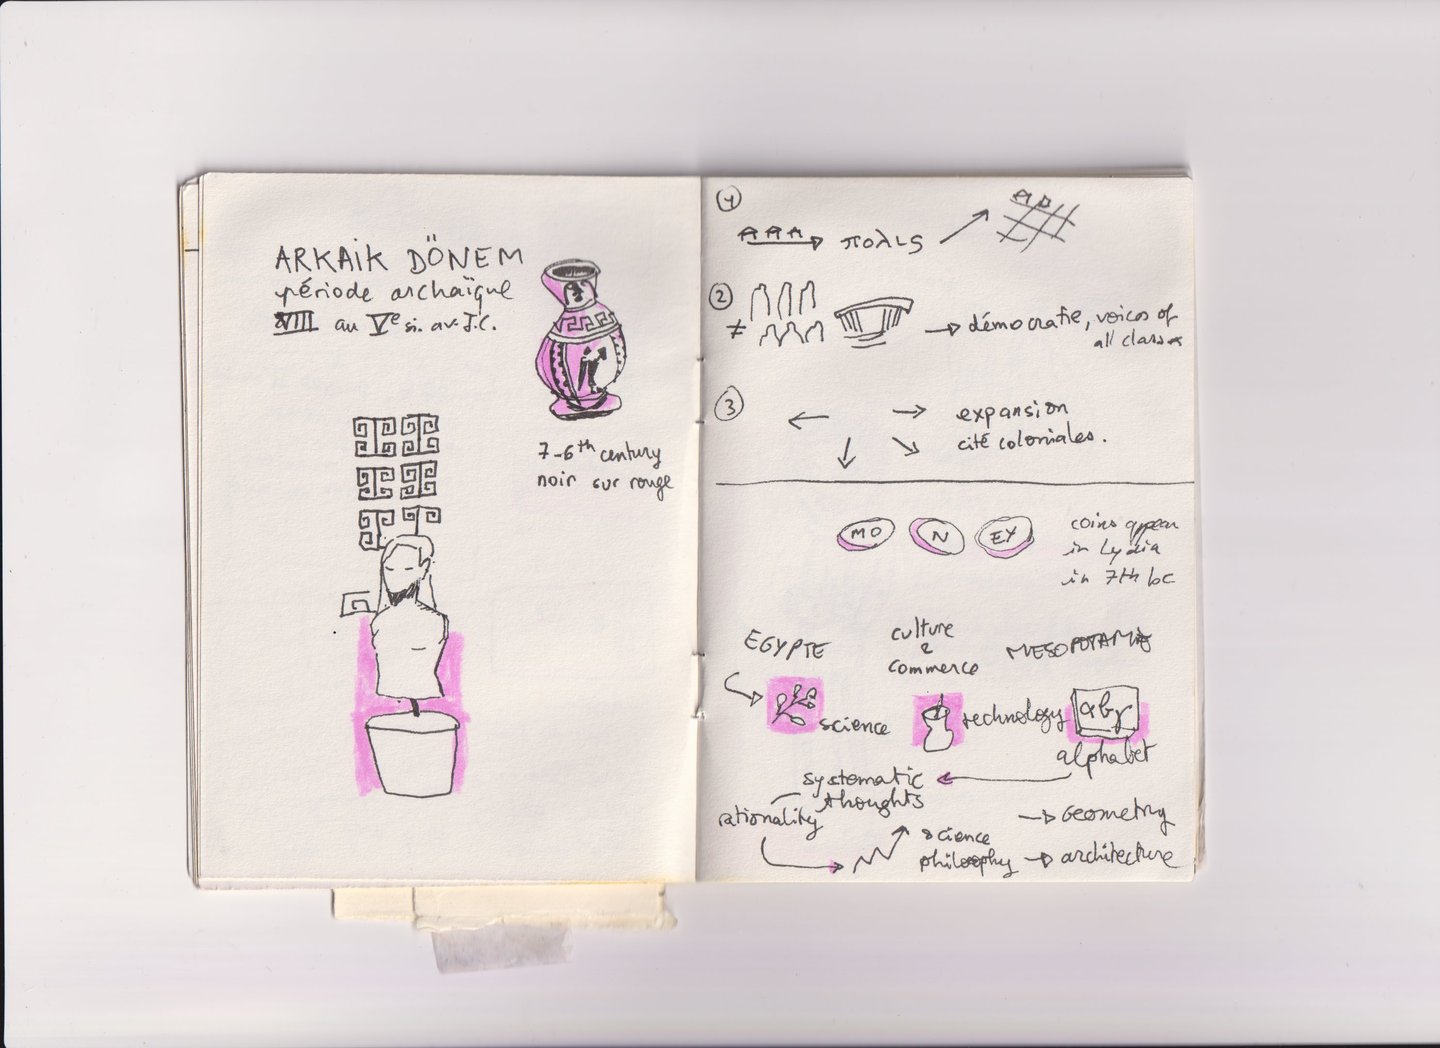 ARKAİK DÖNEM
période archaïque
VIII au Vᵉ si. av. J.C.
7-6ᵗʰ century
noir sur rouge
1
πολις
2
≠
démocratie, voices of
all classes
3
expansion
cité coloniales.
MO N EY
coins appear
in Lydia
in 7th bc
EGYPTE
culture
&
commerce
MESOPOTAMIA
science
technology
abγ
alphabet
systematic
thoughts
rationality
science
philosophy
Geometry
architecture